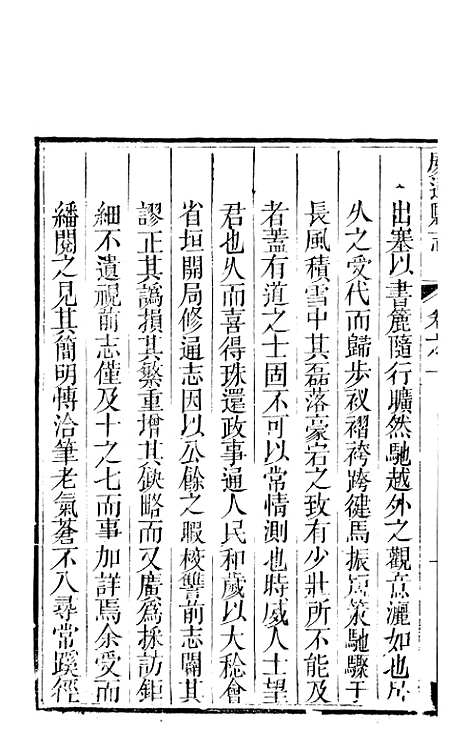 威遠縣志
卷之一
出塞以書簏隨行曠然馳越外之觀意灑如也居
久之受代而歸歩衩褶袴跨健馬振
策馳驟于
長風積雪中其磊落豪宕之致有少壯所不能及
者蓋有道之士固不可以常情測也時威人士望
君也久而喜得珠還政事通人民和歲以大稔會
省垣開局修通志因以公餘之暇校讐前志闢其
謬正其譌損其繁重增其缺略而又廣爲採訪鉅
細不遺視前志僅及十之七而事加詳焉余受而
繙閱之見其簡明愽洽筆老氣蒼不入尋常蹊徑